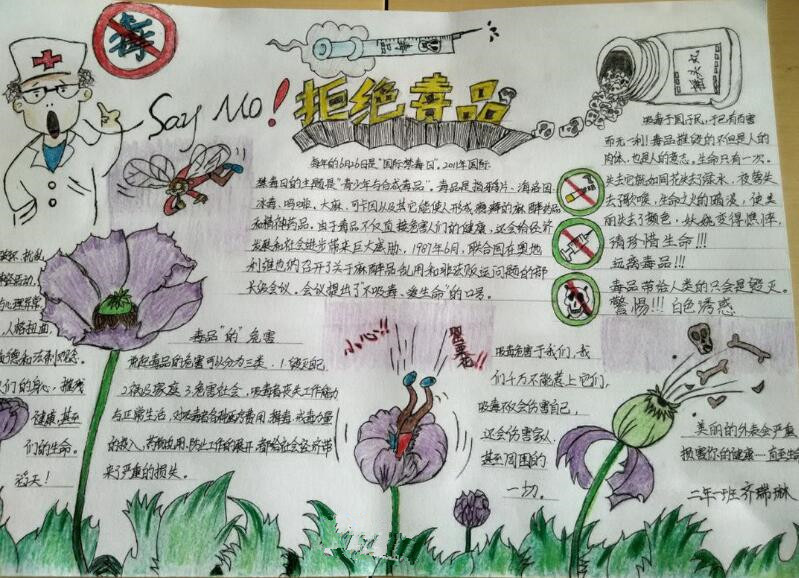 毒
毒品
买冰溜
Say No!
拒绝毒品
每年的6月26日是"国际禁毒日"。2011年国际
禁毒日的主题是"青少年与合成毒品"。毒品是指鸦片、海洛因、
冰毒、吗啡、大麻、可卡因以及其它能使人形成瘾癖的麻醉药品
和精神药品。由于毒品不仅直接危害人们的健康,还会给经济
发展和社会进步带来巨大威胁。1987年6月,联合国在奥地
利维也纳召开了关于麻醉品乱用和非法贩运问题的部
长级会议,会议提出了"不吸毒、爱生命"的口号。
吸毒于国于民,于己有百害
而无一利!毒品摧毁的不但是人的
肉体,也是人的意志。生命只有一次。
失去它就如同花失去了绿水,夜莺失
去了歌喉,生命之火的暗淡,使美
丽失去了颜色,妖娆变得憔悴,
请珍惜生命!!!
远离毒品!!!
毒品带给人类的只会是毁灭。
警惕!!!白色诱惑
人格扭曲
道德和法制观念。
人们的身心,摧残
健康,甚至
们的生命。
毒品"的"危害
毒品的危害可以分为三类:1.毁灭自己
2.祸及家庭 3.危害社会,吸毒者丧失工作能力
与正常生活,对吸毒者各种医疗费用,缉毒、戒毒力量
的投入,药物滥用,防止工作的展开,都给社会经济带
来了严重的损失。
小心!!
罂粟花!!
吸毒危害于我们,我
们千万不能惹上它们,
吸毒不仅会伤害自己,
还会伤害家人,
甚至周围的
一切。
美丽的外表会严重
损害你的健康……直至生命
二年一班齐瑞琳